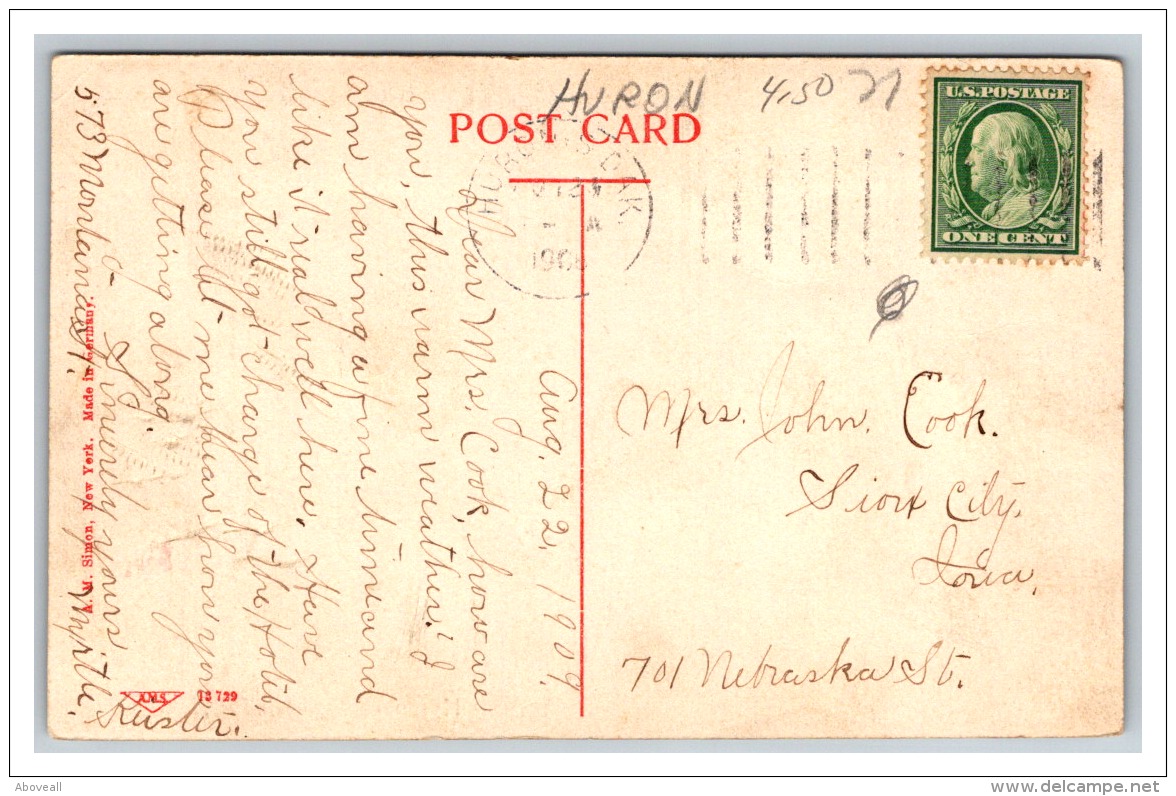 HURON 4.50
POST CARD
HURON S. DAK.
U.S. POSTAGE
ONE CENT
Aug. 22, 1909
Dear Mrs. Cook, how are
you, this warm weather? I
am having a fine time and
like it reall well here. Have
you still got charge of the Hotel,
Please let me hear from you
are getting along.
Sincerely yours
Myrtle
Keister.
573 Montana
Mrs. John. Cook.
Sioux City,
Iowa,
701 Nebraska St.
A. M. Simon, New York. Made in Germany.
A.M.S. 13729
Aboveall
www.delcampe.net